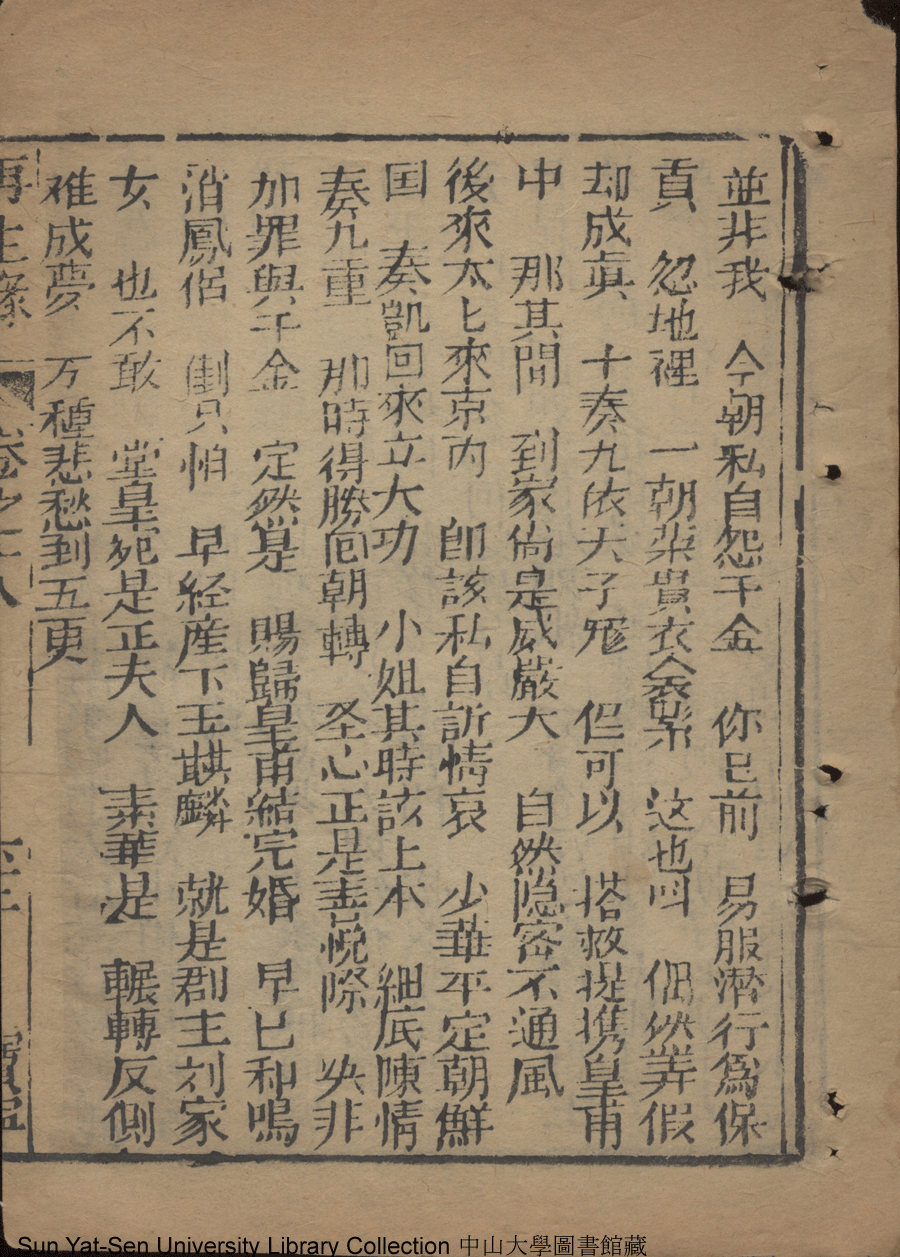 並非我 今朝私自怨千金 你已前 易服潜行爲保
貢 忽地裡 一朝榮貴衣金紫 这也叫 偶然弄假
却成眞 十奏九依天子寵 但可以 搭救提携皇甫
中 那其間 到家尚是威嚴大 自然隐密不通風
後來太七來京内 即該私自訴情哀 少華平定朝鮮
国 奏凱回來立大功 小姐其時該上本 細底陳情
奏九重 那時得勝回朝轉 圣心正是喜悦際 央非
加罪與千金 定然是 賜歸皇甫結完婚 早已和鳴
消鳳侣 只怕 早経産下玉麒麟 就是郡主刘家
女 也不敢 堂皇宛是正夫人 素華是 輾轉反側
难成夢 万種悲愁到五更
再生緣 卷之十八
Sun Yat-Sen University Library Collection 中山大學圖書館藏